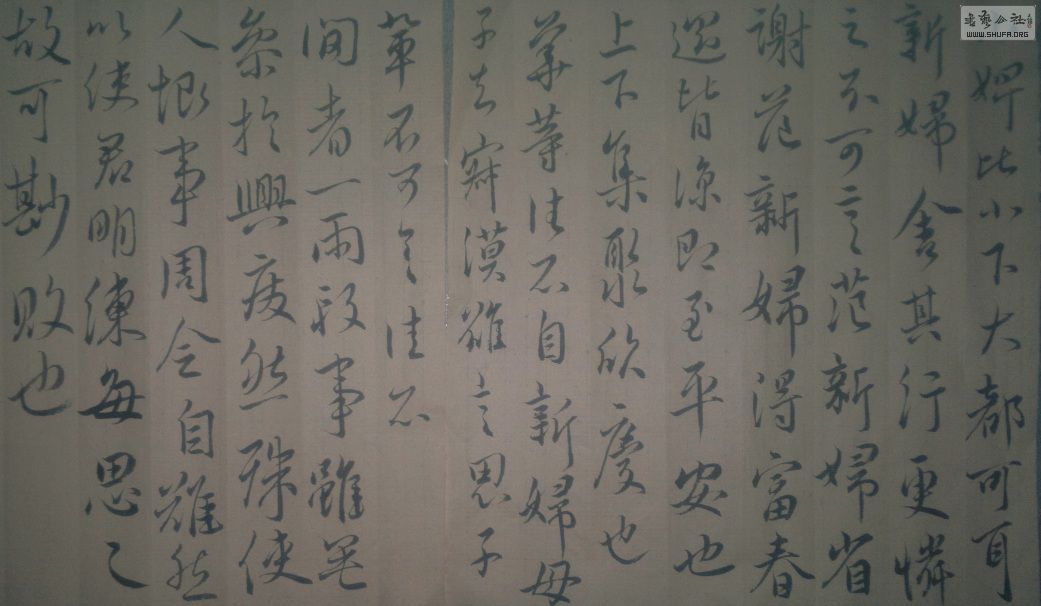 婢比小下大都可耳
新婦舍其行更憐
之不可言范新婦省
謝范新婦得富春
還皆深即至平安也
上下集聚欣慶也
華等佳不自新婦母
子去寂漠難言思子
輩不可言佳不
聞者一兩段事雖羌
參於興廢然殊使
人恨事周令自難然
以使君明練每思之
故可勘敗也
書藝公社
WWW.SHUFA.ORG